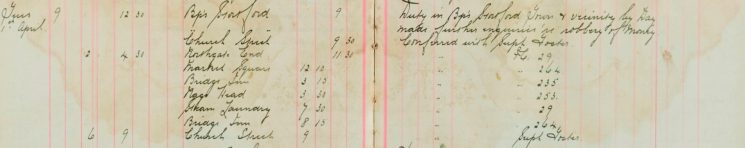 Tues 9 12 30 Bps Stortford 9 Duty in Bps Stortford Town & vicinity by Day
1st April made further enquiries re robbery of Money
Church Street 9 30 Conferred with Supt Foster
2 4 30 Northgate End 11 30 P.C. 29
Market Square 12 15 " 264
Bridge Inn 3 15 " 235
Nags Head 3 30 " 253
Steam Laundry 7 30 " 29
Bridge Inn 8 15 " 264
6 9 Church Street 9 Supt Foster